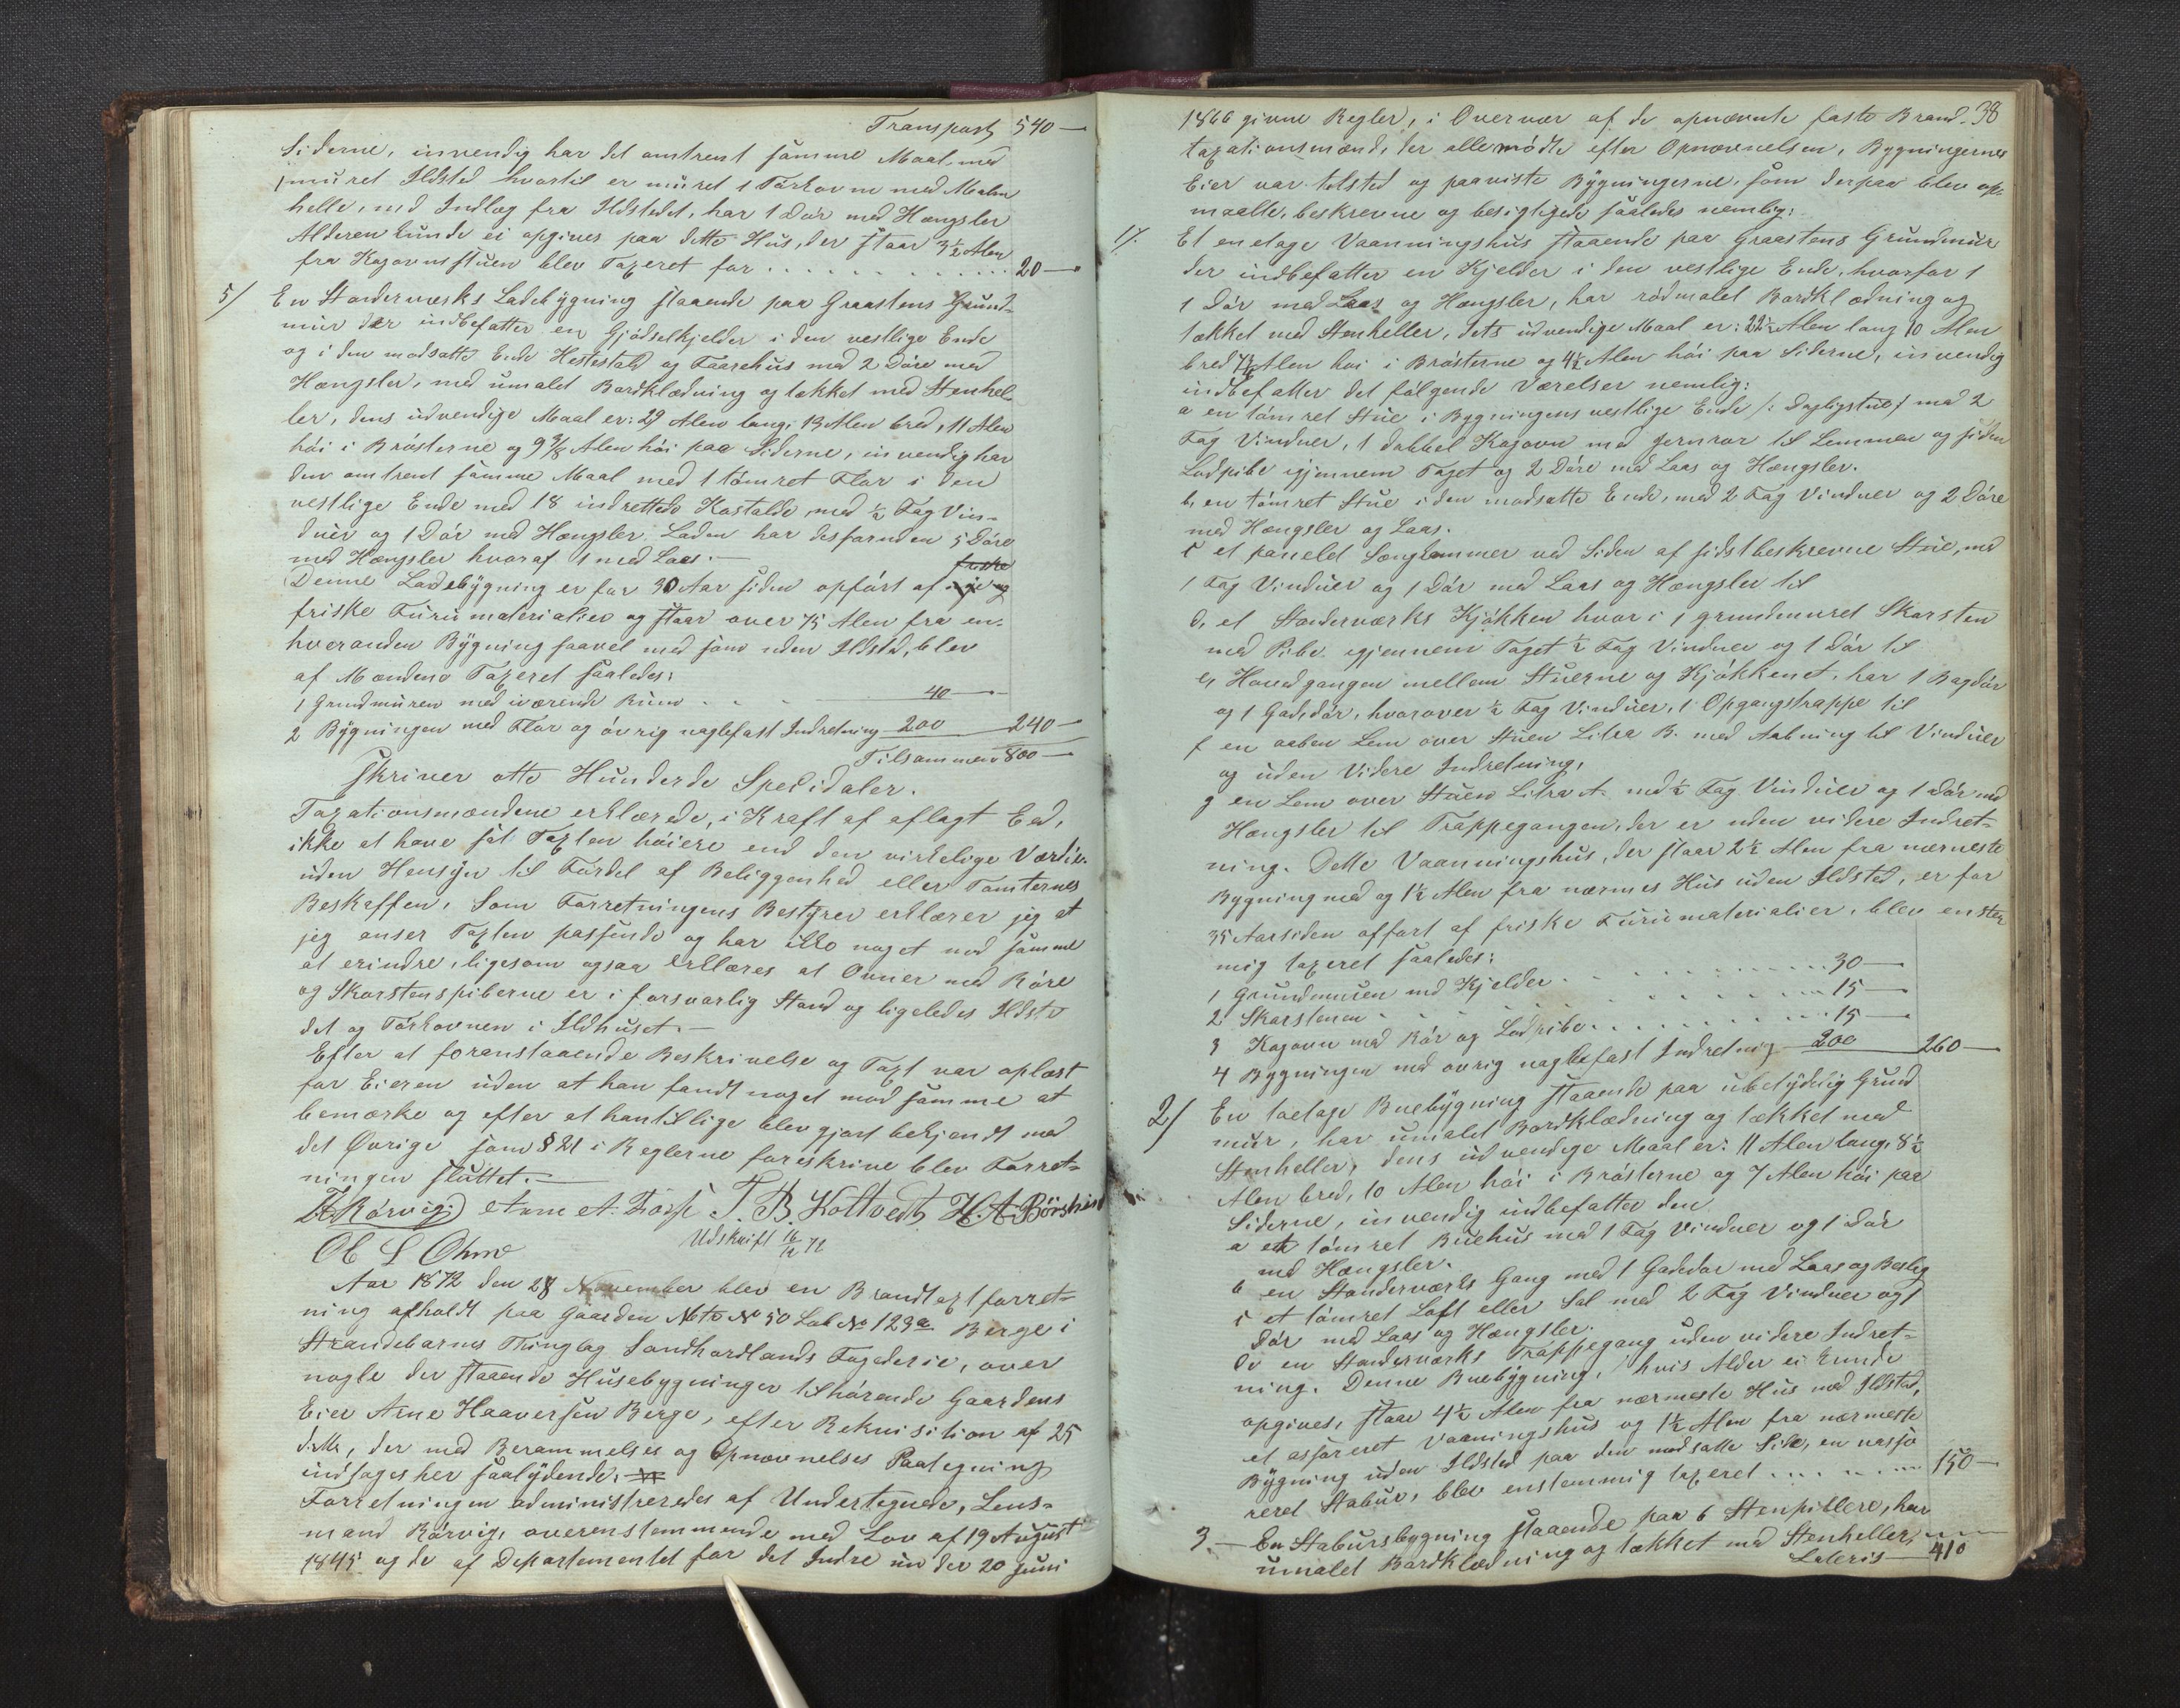 Transport 540 —
Siderne, invendig har det omtrent samme Maal med
1 muret Ildsted hvortil er muret 1 Tørkovn med Malm
helle, med Indlæg fra Ildstedet, har 1 Dør med Hængsler
Alderen kunde ei opgives paa dette Hus, der staar 3½ Alen
fra Kogovnsstuen blev Taxeret for . . . . . . . . . . . . . 20 —
5/ En Stenderværks Ladebygning staaende paa Graastens Grund-
mur der indbefatter en Gjødselkjelder i den vestlige Ende
og i den modsatte Ende Hestestald og Faarehus med 2 Døre med
Hængsler, med umalet Bordklædning og tækket med Stenhel-
ler, dens udvendige Maal er: 29 Alen lang, 13 Alen bred, 11 Alen
høi i Brøsterne og 9 3/8 Alen høi paa Siderne, invendig har
den omtrent samme Maal med 1 tømret Flor i den
vestlige Ende med 18 indrettede Kostalde, med ½ Fag Vin-
duer og 1 Dør med Hængsler. Laden har desforuden 5 Døre
med Hængsler hvoraf 1 med Laas. —
Denne Ladebygning er for 30 Aar siden opført af
friske Furumaterialier og staar over 75 Alen fra en-
hveranden Bygning saavel med som uden Ildsted, blev
af Mændene Taxeret saaledes:
1 Grundmuren med iværende Rum . . . 40 —
2 Bygningen med Flor og øvrig naglefast Indretning 200 240 —
Tilsammen 800 —
skriver otte Hundrede Speciedaler.
Taxationsmændene erklærede, i Kraft af aflagt Eed,
ikke at have sat Taxten høiere end den virkelige Værdie
uden Hensyn til Fordel af Beliggenhed eller Tomternes
Beskaffen. Som Forretningens Bestyrer erklærer jeg at
jeg anser Taxten passende og har ikke noget mod samme
at erindre, ligesom ogsaa erklæres at Ovner med Røre
og Skorstenspiberne er i forsvarlig Stand og ligeledes Ildste
det og Tørkovnen i Ildhuset. —
Efter at foranstaaende Beskrivelse og Taxt var oplæst
for Eieren uden at han fandt noget mod samme at
bemærke og efter at han tillige blev gjort bekjendt med
det Øvrige som § 21 i Reglerne foreskrive blev Forret-
ningen sluttet. —
Rørvig T. B. Koltvedt H. A. Børshein
Ol S Ohm Udskrift 16/12 72
Aar 1872 den 28 November blev en Brandtaxtforret-
ning afholdt paa Gaarden Mtr No 50 Lab No 123a Berge i
Strandebarms Thinglag Søndhordlands Fogederie, over
nogle der staaende Husebygninger tilhørende Gaardens
Eier Arne Haaversen Berge, efter Rekvisition af 25
d. M., der med Berammelses og Opnævnelses Paategning
indtages her saalydende.
Forretningen administreredes af Undertegnede, Lens-
mand Rørvig, overenstemmende med Lov af 19 August
1845 og de af Departementet for det Indre under 20 Juni
38
1866 givne Regler, i Overvær af de opnævnte faste Brand-
taxationsmænd, der alle mødte efter Opnævnelsen, Bygningernes
Eier var tilsted og paaviste Bygningerne, som derpaa blev op-
maalte, beskrevne og besigtigede saaledes nemlig:
1/. Et enetage Vaaningshus staaende paa Graastens Grundmur
der indbefatter en Kjelder i den vestlige Ende, hvorfor 1
1 Dør med Laas og Hængsler, har rødmalet Bordklædning og
tækket med Stenheller, dets udvendige Maal er: 22½ Alen lang 10 Alen
bred 7½ Alen høi i Brøsterne og 4½ Alen høi paa Siderne, invendig
indbefatter det følgende Værelser nemlig:
a en tømret Stue i Bygningens vestlige Ende /: Dagligstue :/ med 2
Fag Vinduer, 1 dobbel Kogovn med Jernrør til Lemmen og siden
Lodpibe igjennem Taget og 2 Døre med Laas og Hængsler.
b, en tømret Stue i den modsatte Ende, med 2 Fag Vinduer og 2 Døre
med Hængsler og Laas.
c et panelet Sængkammer ved Siden af sidstbeskrevne Stue, med
1 Fag Vinduer og 1 Dør med Laas og Hængsler til
d, et Stenderværks Kjøkken hvori 1 grundmuret Skorsten
med Pibe igjennem Taget ½ Fag Vinduer og 1 Dør til
e, Hovedgangen mellem Stuerne og Kjøkkenet, har 1 Bagdør
og 1 Gadedør, hvorover ½ Fag Vinduer, 1 Opgangstrappe til
f en aaben Lem over Stuen Litra B. med Aabning til Vinduer
og uden Videre Indretning,
g en Lem over Stuen Litra A. med ½ Fag Vinduer og 1 Dør med
Hængsler til Trappegangen, der er uden videre Indret-
ning. Dette Vaaningshus, der staar 2½ Alen fra nærmeste
Bygning med og 1½ Alen fra nærmes Hus uden Ildsted, er for
35 Aar siden opført af friske Furumaterialier, blev enstem
mig taxeret saaledes:
1 Grundmuren med Kjelder . . . . . . . . 30 —
2 Skorstenen . . . . . . . . 15 —
3 Kogovn med Rør og Lodpibe . . . . . . . . 15 —
4 Bygningen med øvrig naglefast Indretning 200 260 —
2/ En toetage Buebygning staaende paa ubetydelig Grund
mur, har umalet Bordklædning og tækket med
Stenheller, dens udvendige Maal er: 11 Alen lang, 8½
Alen bred, 10 Alen høi i Brøsterne og 7 Alen høi paa
Siderne, invendig indbefatter den
a et tømret Buehus med 1 Fag Vinduer og 1 Dør
med Hængsler.
b en Stenderværks Gang med 1 Gadedør med Laas og Beslag
c et tømret Loft eller Sal med 2 Fag Vinduer og 1
Dør med Laas og Hængsler.
d en Stenderværks Trappegang uden videre Indret-
ning. Denne Buebygning, hvis Alder ei kunde
opgives, staar 4½ Alen fra nærmeste Hus med Ildsted,
et assureret Vaaningshus og 1½ Alen fra nærmeste
Bygning uden Ildsted paa den modsatte Side, en uassu
reret Stabur, blev enstemmig taxeret . . . . . . . 150 —
3. — En Stabursbygning staaende paa 6 Stenpillere, har
umalet Bordklædning og tækket med Stenheller,
Lateris — 410